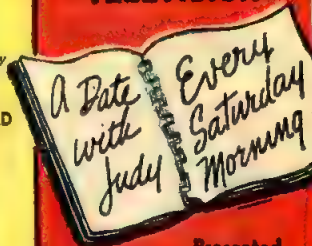 A Date
with
Judy
Every
Saturday
Morning
Presented